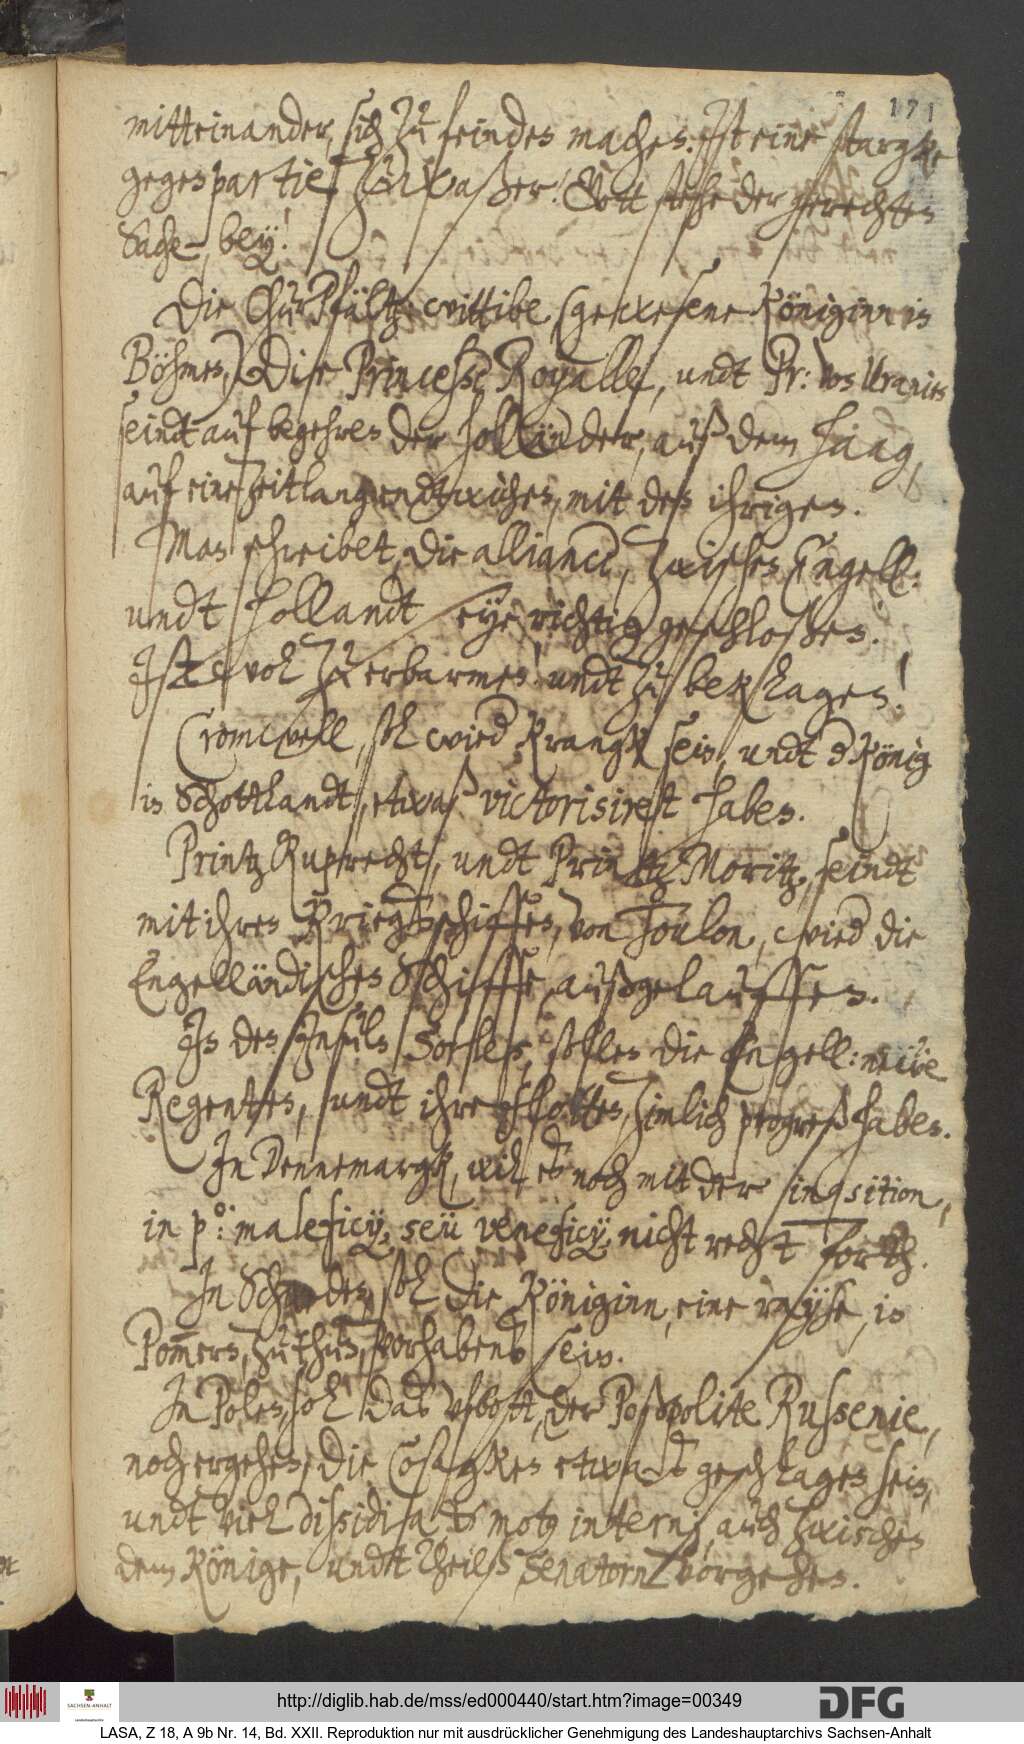 171
mitteinander, sich zu feinden machen. Jst eine starcke
gegenpartie! Zu waßer! Gott stehe der gerechten
Sache, bey!
Die ChurPfältz: wittibe, (gewesene Königinn in
Böhmen,) Die Princesse Royalle, undt Pr: von Uranien
seindt auf begehren der Holländer, auß dem Haag,
auf eine zeitlang endtwichen, mit den ihrigen.
Man schreibet, die alliance, zwischen Engell:
undt Hollandt seye, richtig geschloßen.
Jst wol zu erbarmen! undt zu beklagen!
Cromwell, soll wied krangk sein, undt d König
in Schottlandt, etwaß victorisiret haben.
Printz Ruprecht, undt Printz Moritz, seindt
mit ihren Kriegsschiffen, von Toulon, wied die
Engelländischen Schiffe, außgelauffen.
Jn den Jnsuln Sorles, sollen die Engell: neue
Regenten, undt ihre flotten, zimlich progreß haben.
Jn Dennemargk, will es noch mit der inqsition,
in p.º: maleficij, seu veneficij, nicht recht forth.
Jn Schweden, soll die Königinn, eine rayse, in
Pom̅ern, zu thun, vorhabens sein.
Jn Polen, soll das ufbott, der Poßpolite Russenie,
noch ergehen, die Cosagken etwas geschlagen sein,
undt viel dissidia et motus interni, auch zwischen
dem Könige, undt theilß Senatorn vorgehen.
http://diglib.hab.de/mss/ed000440/start.htm?image=00349
DFG
SACHSEN-ANHALT
LASA, Z 18, A 9b Nr. 14, Bd. XXII. Reproduktion nur mit ausdrücklicher Genehmigung des Landeshauptarchivs Sachsen-Anhalt